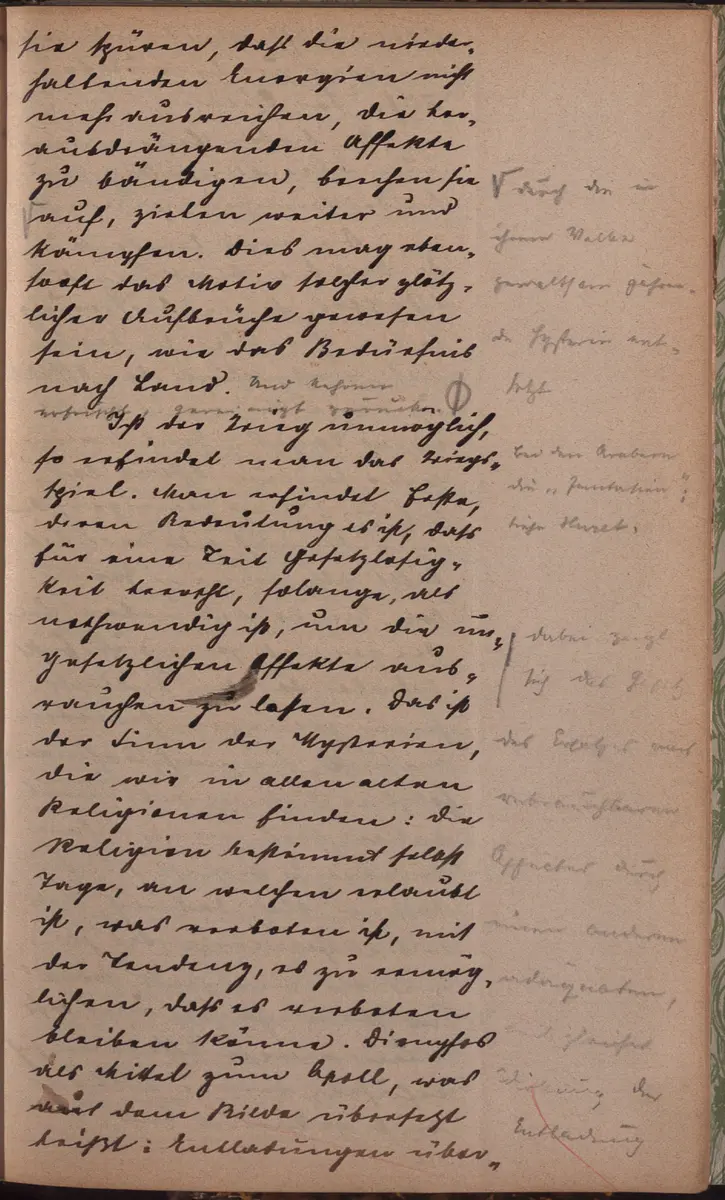 sie spüren, daß die nieder-
haltenden Energien nicht
mehr ausreichen, die her-
ausdrängenden Affekte
zu bändigen, brechen sie
auf, ziehen weiter und
kämpfen. Dies mag eben-
sooft das Motiv solcher plötz-
licher Aufbrüche gewesen
sein, wie das Bedürfnis
nach Land. Und kehren
gereinigt zurück.
Ist der Krieg unmöglich,
so erfindet man das Kriegs-
spiel. Man erfindet Feste,
deren Bedeutung es ist, daß
für eine Zeit Gesetzlosig-
keit herrscht, solange, als
nothwendig ist, um die un-
gesetzlichen Affekte aus-
rauchen zu lassen. Das ist
der Sinn der Mysterien,
die wir in allen alten
Religionen finden: die
Religion bestimmt selbst
Tage, an welchen erlaubt
ist, was verboten ist, mit
der Tendenz, es zu ermög-
lichen, daß es verboten
bleiben könne. Dionysos
als Mittel zum Apoll, was
aus dem Bilde übersetzt
heißt: Entladungen über-
durch die in
ihrem Volke
gewaltsam
de Hysterie ent-
setzt
bei den Arabern
die
dabei zeigt
sich das Gesetz
des Ersatzes eines
unbrauchbaren
Affectes durch
einen anderen
adäquaten,
Wirkung der
Entladung